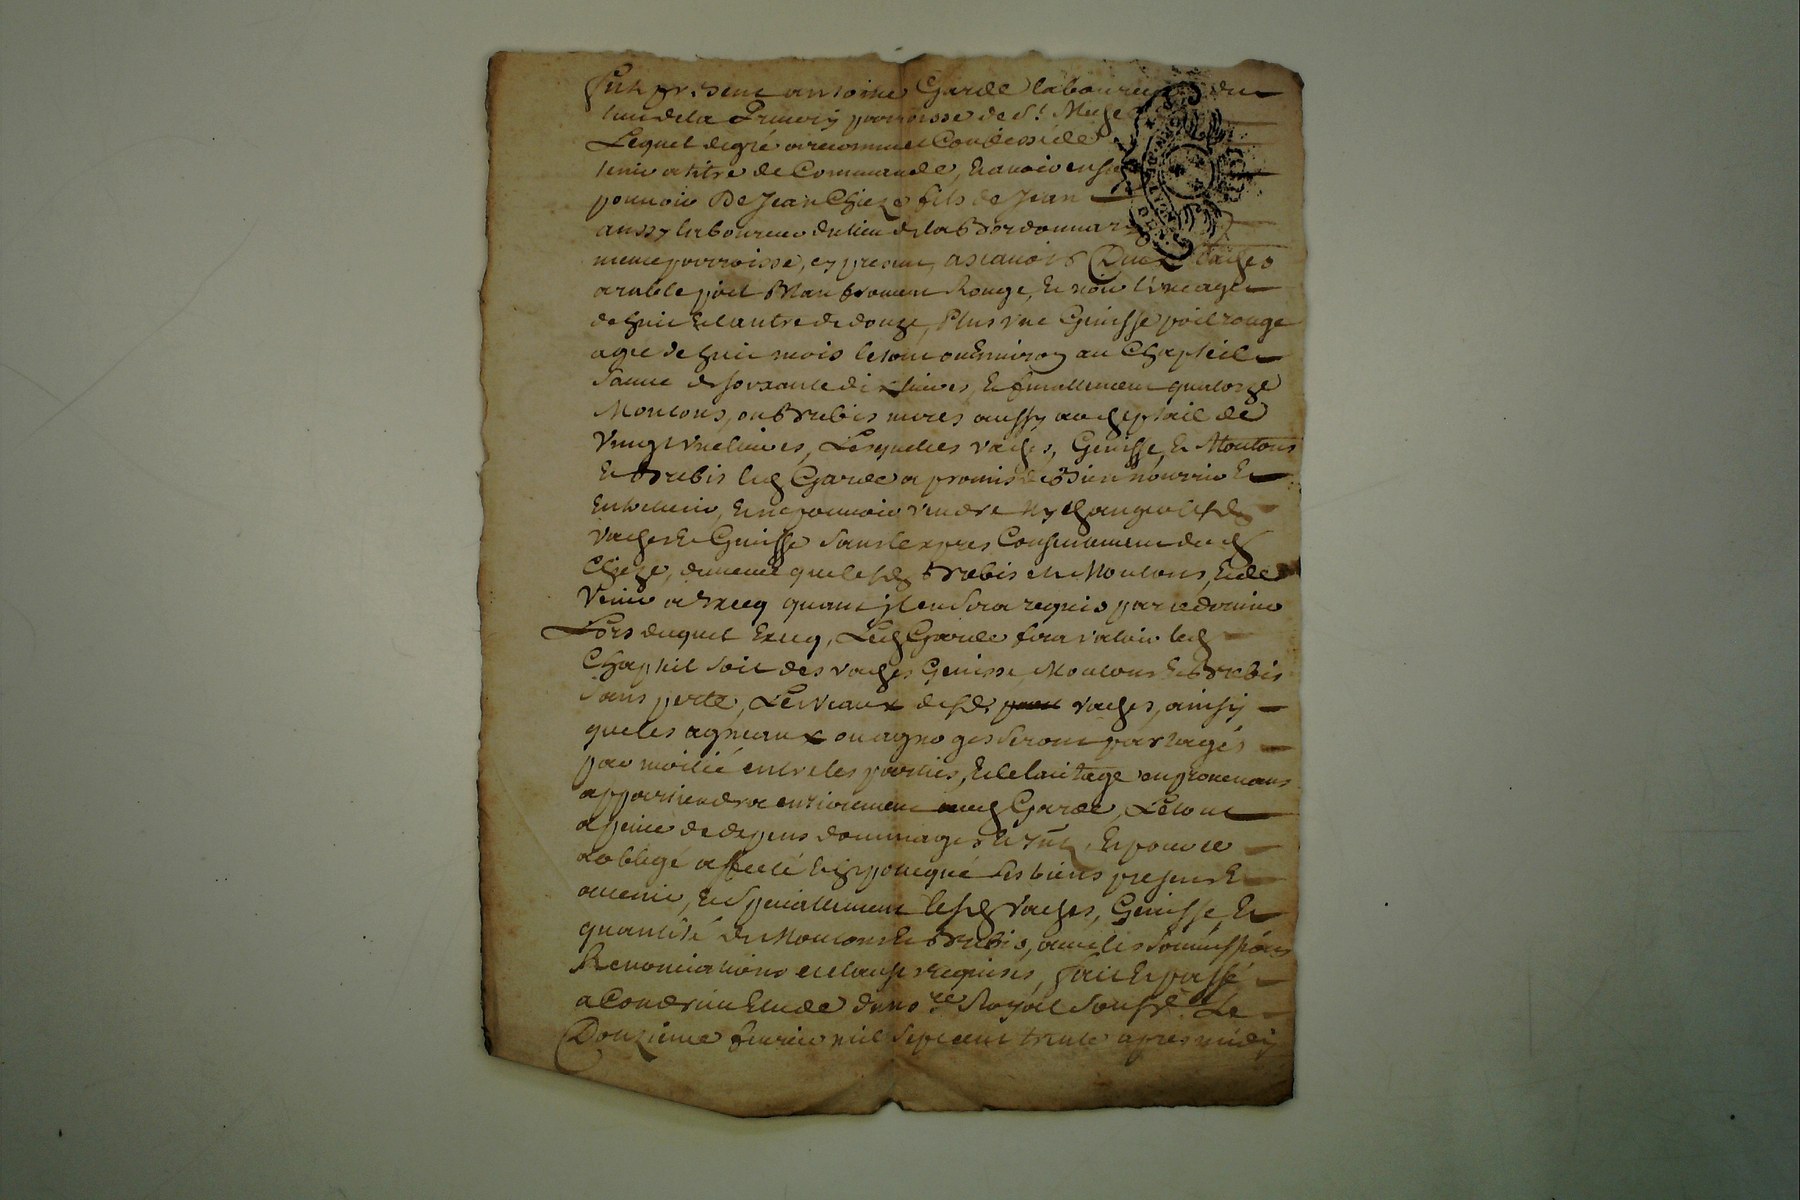 Fut present antoine Garde laboureur du
lieu de la parroisse de St.
Lequel de gré a reconnu et Confessé de
tenir a titre de Commande, et avoir en son
pouvoir De Jean Chieze fils de Jean
aussy laboureur du lieu de la
meme parroisse, cy present, ascavoir Deux vaches
arable poil Rouge, Et noir l'une agée
de huit et l'autre de douze, Plus une Genisse poil rouge
agée de huit mois le tout ou Environ au Chapteil
de soixante dix livres, Et finallement quatorze
Moutons, ou Brebis meres aussy au cheptail de
vingt une livres, Lesquelles vaches, Genisse, Et Moutons
Et Brebis led Garde a promis de Bien nourrir Et
Entretenir, Et ne pouvoir vendre ny changer lesd
vaches Et Genisse sans l'expres Consentement dud
Chieze, de meme que lesd Brebis et Moutons, Et de
Venir a Exeq quant il en sera requis par ce dernier
Lors duquel Exeq, Led Garde fera valoir led
Chaptel soit des vaches Genisse Moutons Et Brebis
sans perte, Les veaux desd vaches, ainsy
que les agneaux ou agno ges seront partagés
par moitié entre les parties, Et le laitage en provenans
appartiendra entierement aud Garde, Le tout
a peine de depens dommages Et Et pour ce
a obligé affecté Et hypotequé ses biens presens Et
avenir, Et speciallement lesd vaches, Genisse, Et
quantité de Moutons Et Brebis, avec les soumissions
Renonciations et clauses requises, fait Et passé
a Condrieu Etude du no.re Royal soussé. Le
Douzieme fevrier mil sept cent trente apres midy